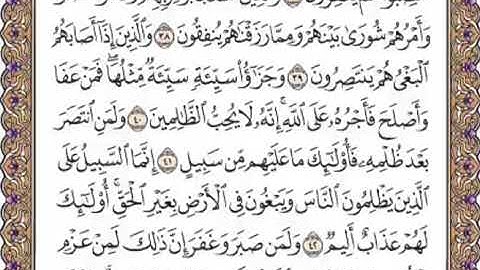 وَأَمْرُهُمْ شُورَىٰ بَيْنَهُمْ وَمِمَّا رَزَقْنَٰهُمْ يُنفِقُونَ ٣٨ وَٱلَّذِينَ إِذَآ أَصَابَهُمُ
ٱلْبَغْىُ هُمْ يَنتَصِرُونَ ٣٩ وَجَزَٰٓؤُا۟ سَيِّئَةٍ سَيِّئَةٌ مِّثْلُهَا ۖ فَمَنْ عَفَا
وَأَصْلَحَ فَأَجْرُهُۥ عَلَى ٱللَّهِ ۚ إِنَّهُۥ لَا يُحِبُّ ٱلظَّٰلِمِينَ ٤٠ وَلَمَنِ ٱنتَصَرَ
بَعْدَ ظُلْمِهِۦ فَأُو۟لَٰٓئِكَ مَا عَلَيْهِم مِّن سَبِيلٍ ٤١ إِنَّمَا ٱلسَّبِيلُ عَلَى
ٱلَّذِينَ يَظْلِمُونَ ٱلنَّاسَ وَيَبْغُونَ فِى ٱلْأَرْضِ بِغَيْرِ ٱلْحَقِّ ۚ أُو۟لَٰٓئِكَ
لَهُمْ عَذَابٌ أَلِيمٌ ٤٢ وَلَمَن صَبَرَ وَغَفَرَ إِنَّ ذَٰلِكَ لَمِنْ عَزْمِ